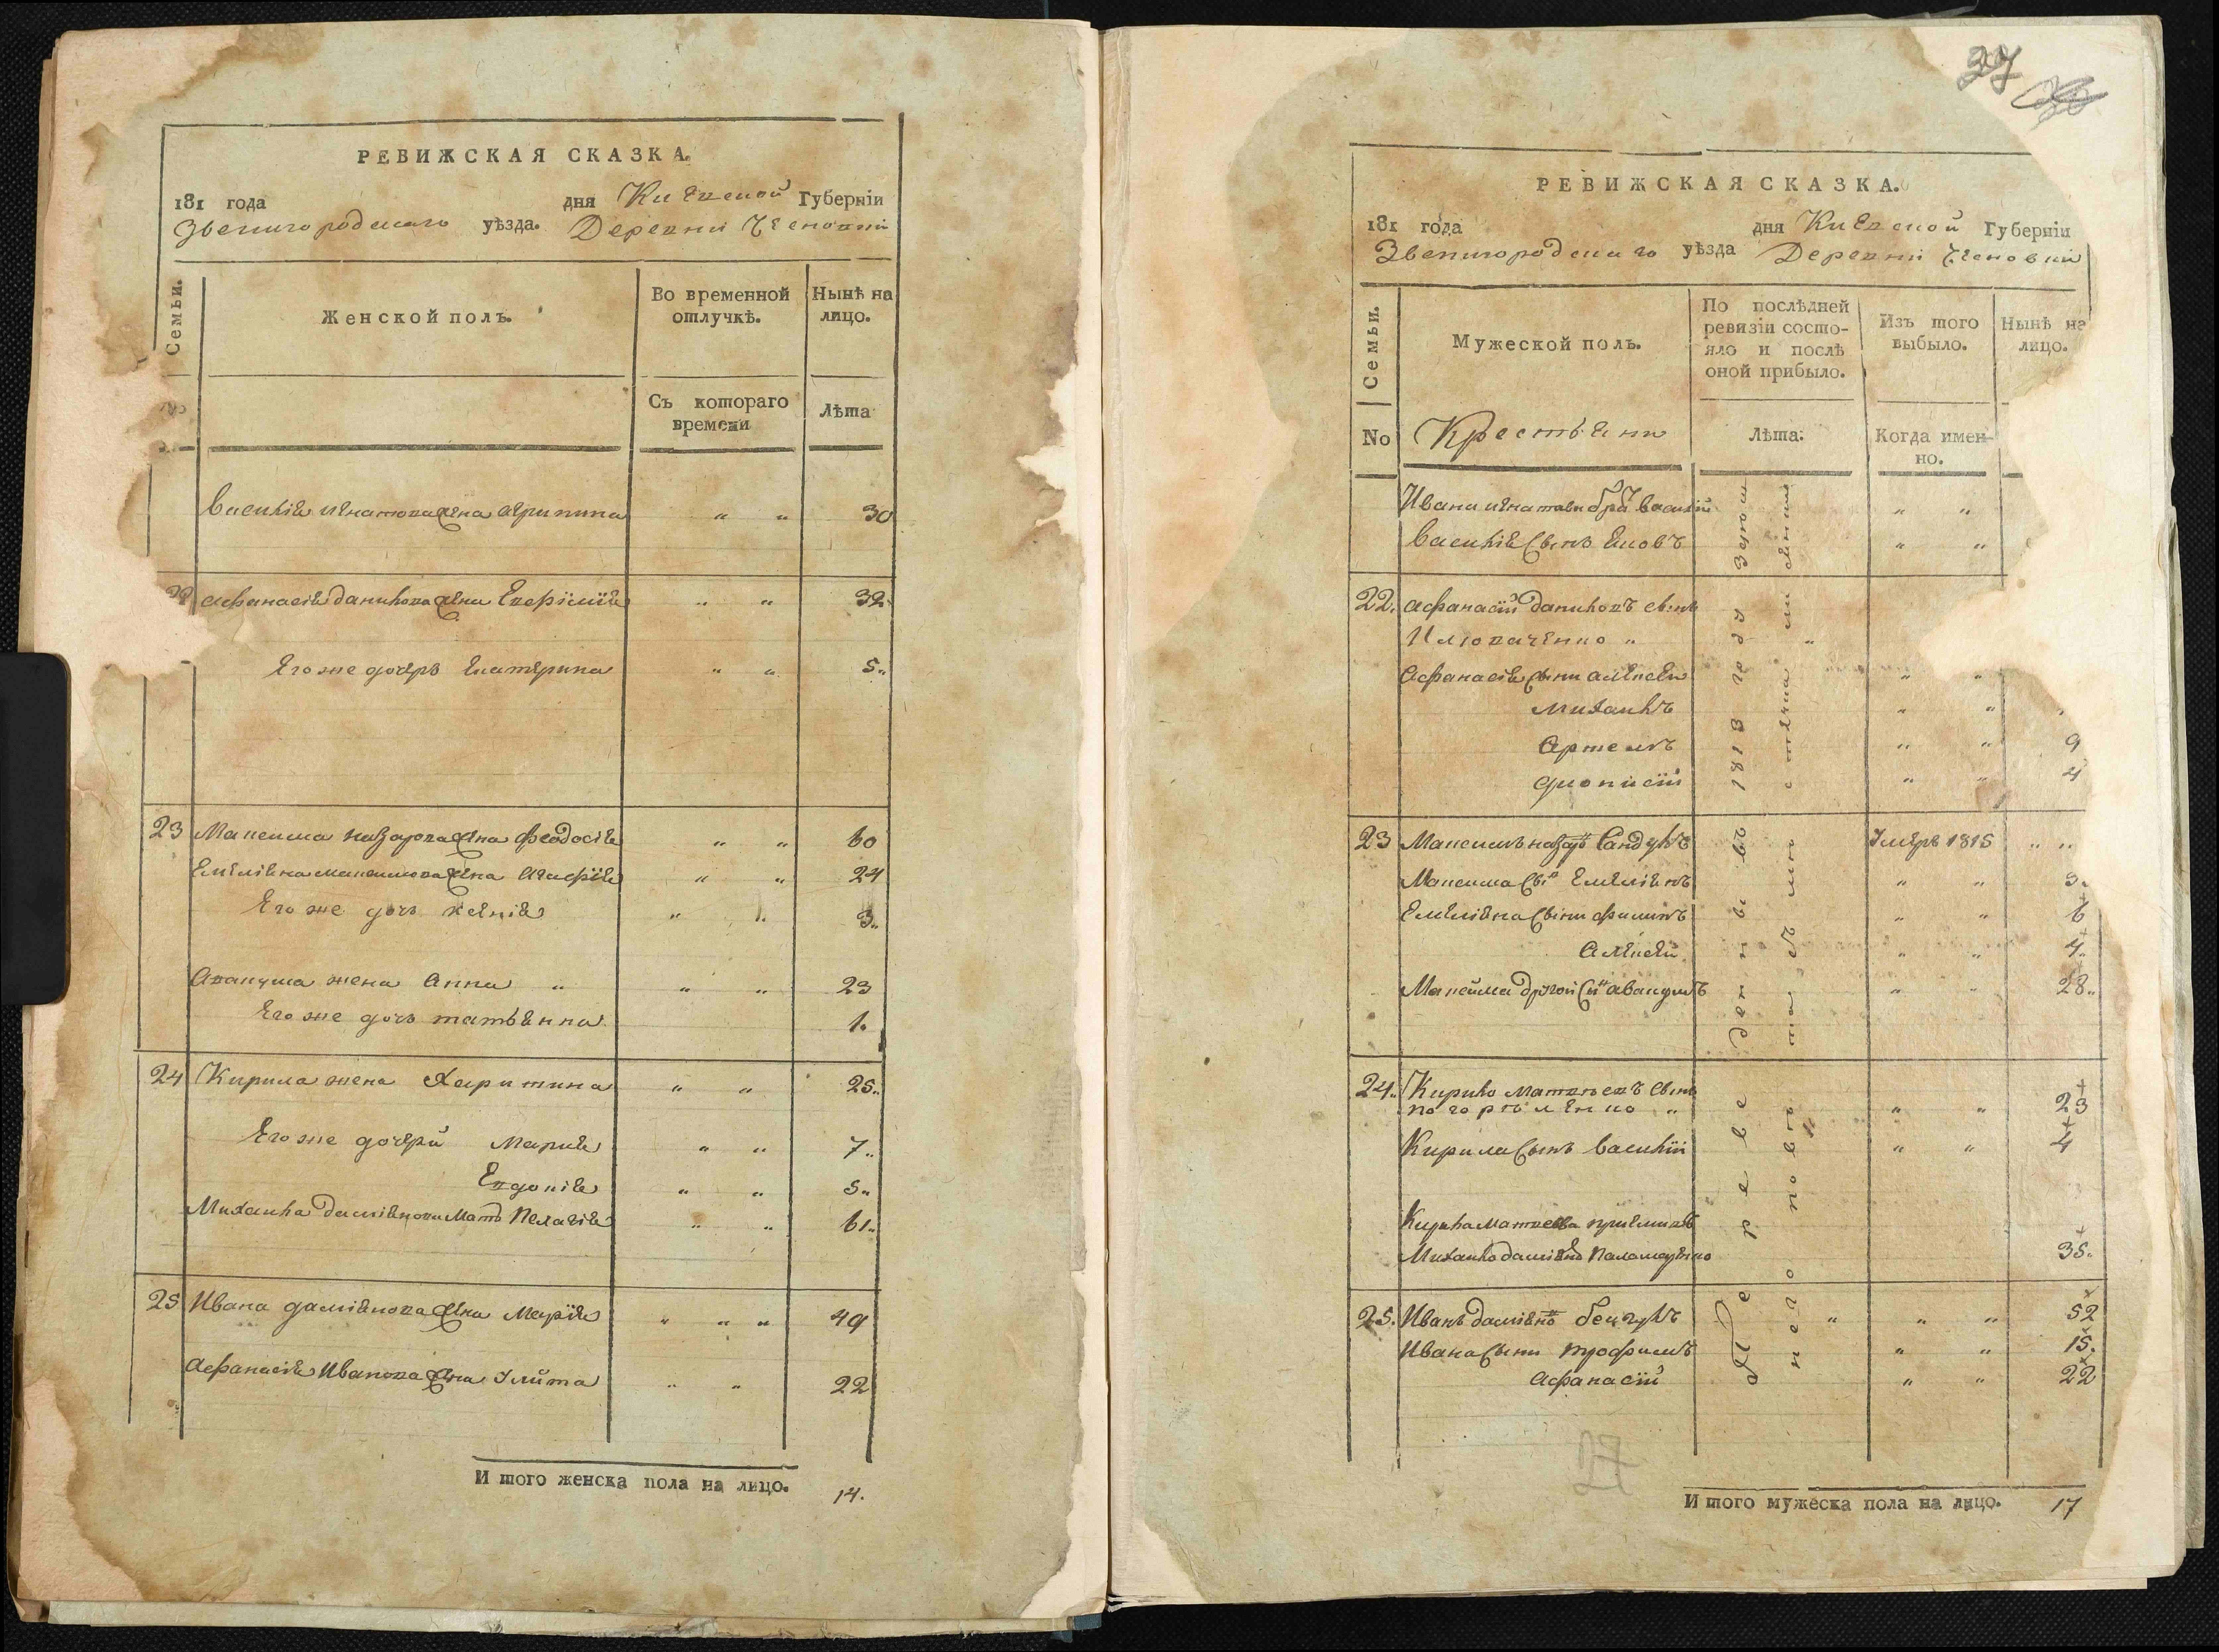 РЕВИЖСКАЯ СКАЗКА.
181 года дня Киевской Губерніи
Звенигородскаго уѣзда. Деревни
Семьи.
Женской полъ.
Во временной отлучкѣ.
Нынѣ на лицо.
Съ котораго времени
Лѣта
Василія Игнатова жена Агрипина " " 30
Афанасія Данилова жена Евфимія " " 32.
Его же дочерь Екатерина " " 5.
23 Максима Назарова жена Феодосія " " 60
Емеліяна Максимова жена Агафія " " 24
Его же дочь Ксенія " " 3.
Авакума жена Анна " " " 23
Его же дочь татьянна 1.
24 Кирила жена Харитина " " 25.
Его же дочери Марія " " 7.
Евдокія " " 5.
Михаила Даміянова Мать Пелагія " " 61.
25 Ивана даміянова жена Марія " " " 49
Афанасія Иванова жена Улита " " 22
И того женска пола на лицо. 14.
37
РЕВИЖСКАЯ СКАЗКА.
181 года дня Киевской Губерніи
Звенигородскаго уѣзда Деревни
Семьи.
Мужеской полъ.
По послѣдней ревизіи состояло и послѣ оной прибыло.
Изъ того выбыло.
Нынѣ на лицо.
No Крестьяни
Лѣта.
Когда именно.
Ивана Игнатова братъ Василій " "
Василія Сынъ Яковъ " "
22. Афанасій Даниловъ сынъ
"
Афанасія Сыны Алексей " "
Михаилъ " "
Артемъ " " 9
Дионисій " " 4
23 Максимъ Назаровъ 1815 " "
Максима Сынъ Емеліянъ " " 3
Емеліяна Сыны Филипъ " " 6
Алексей " " 4.
Максима другой Сынъ Авакумъ " " 28.
24. Кирило Матвеевъ Сынъ
погорѣленко " " " 23
Кирила Сынъ Василій " " 4
Кирила Матвеева приемышъ
Михаило Даміяновъ Паламаренко 35.
25. Иванъ Даміяновъ " " " 52
Ивана Сыны Трофимъ " " 15.
Афанасій " " 22
1818 года
27
И того мужеска пола на лицо. 17